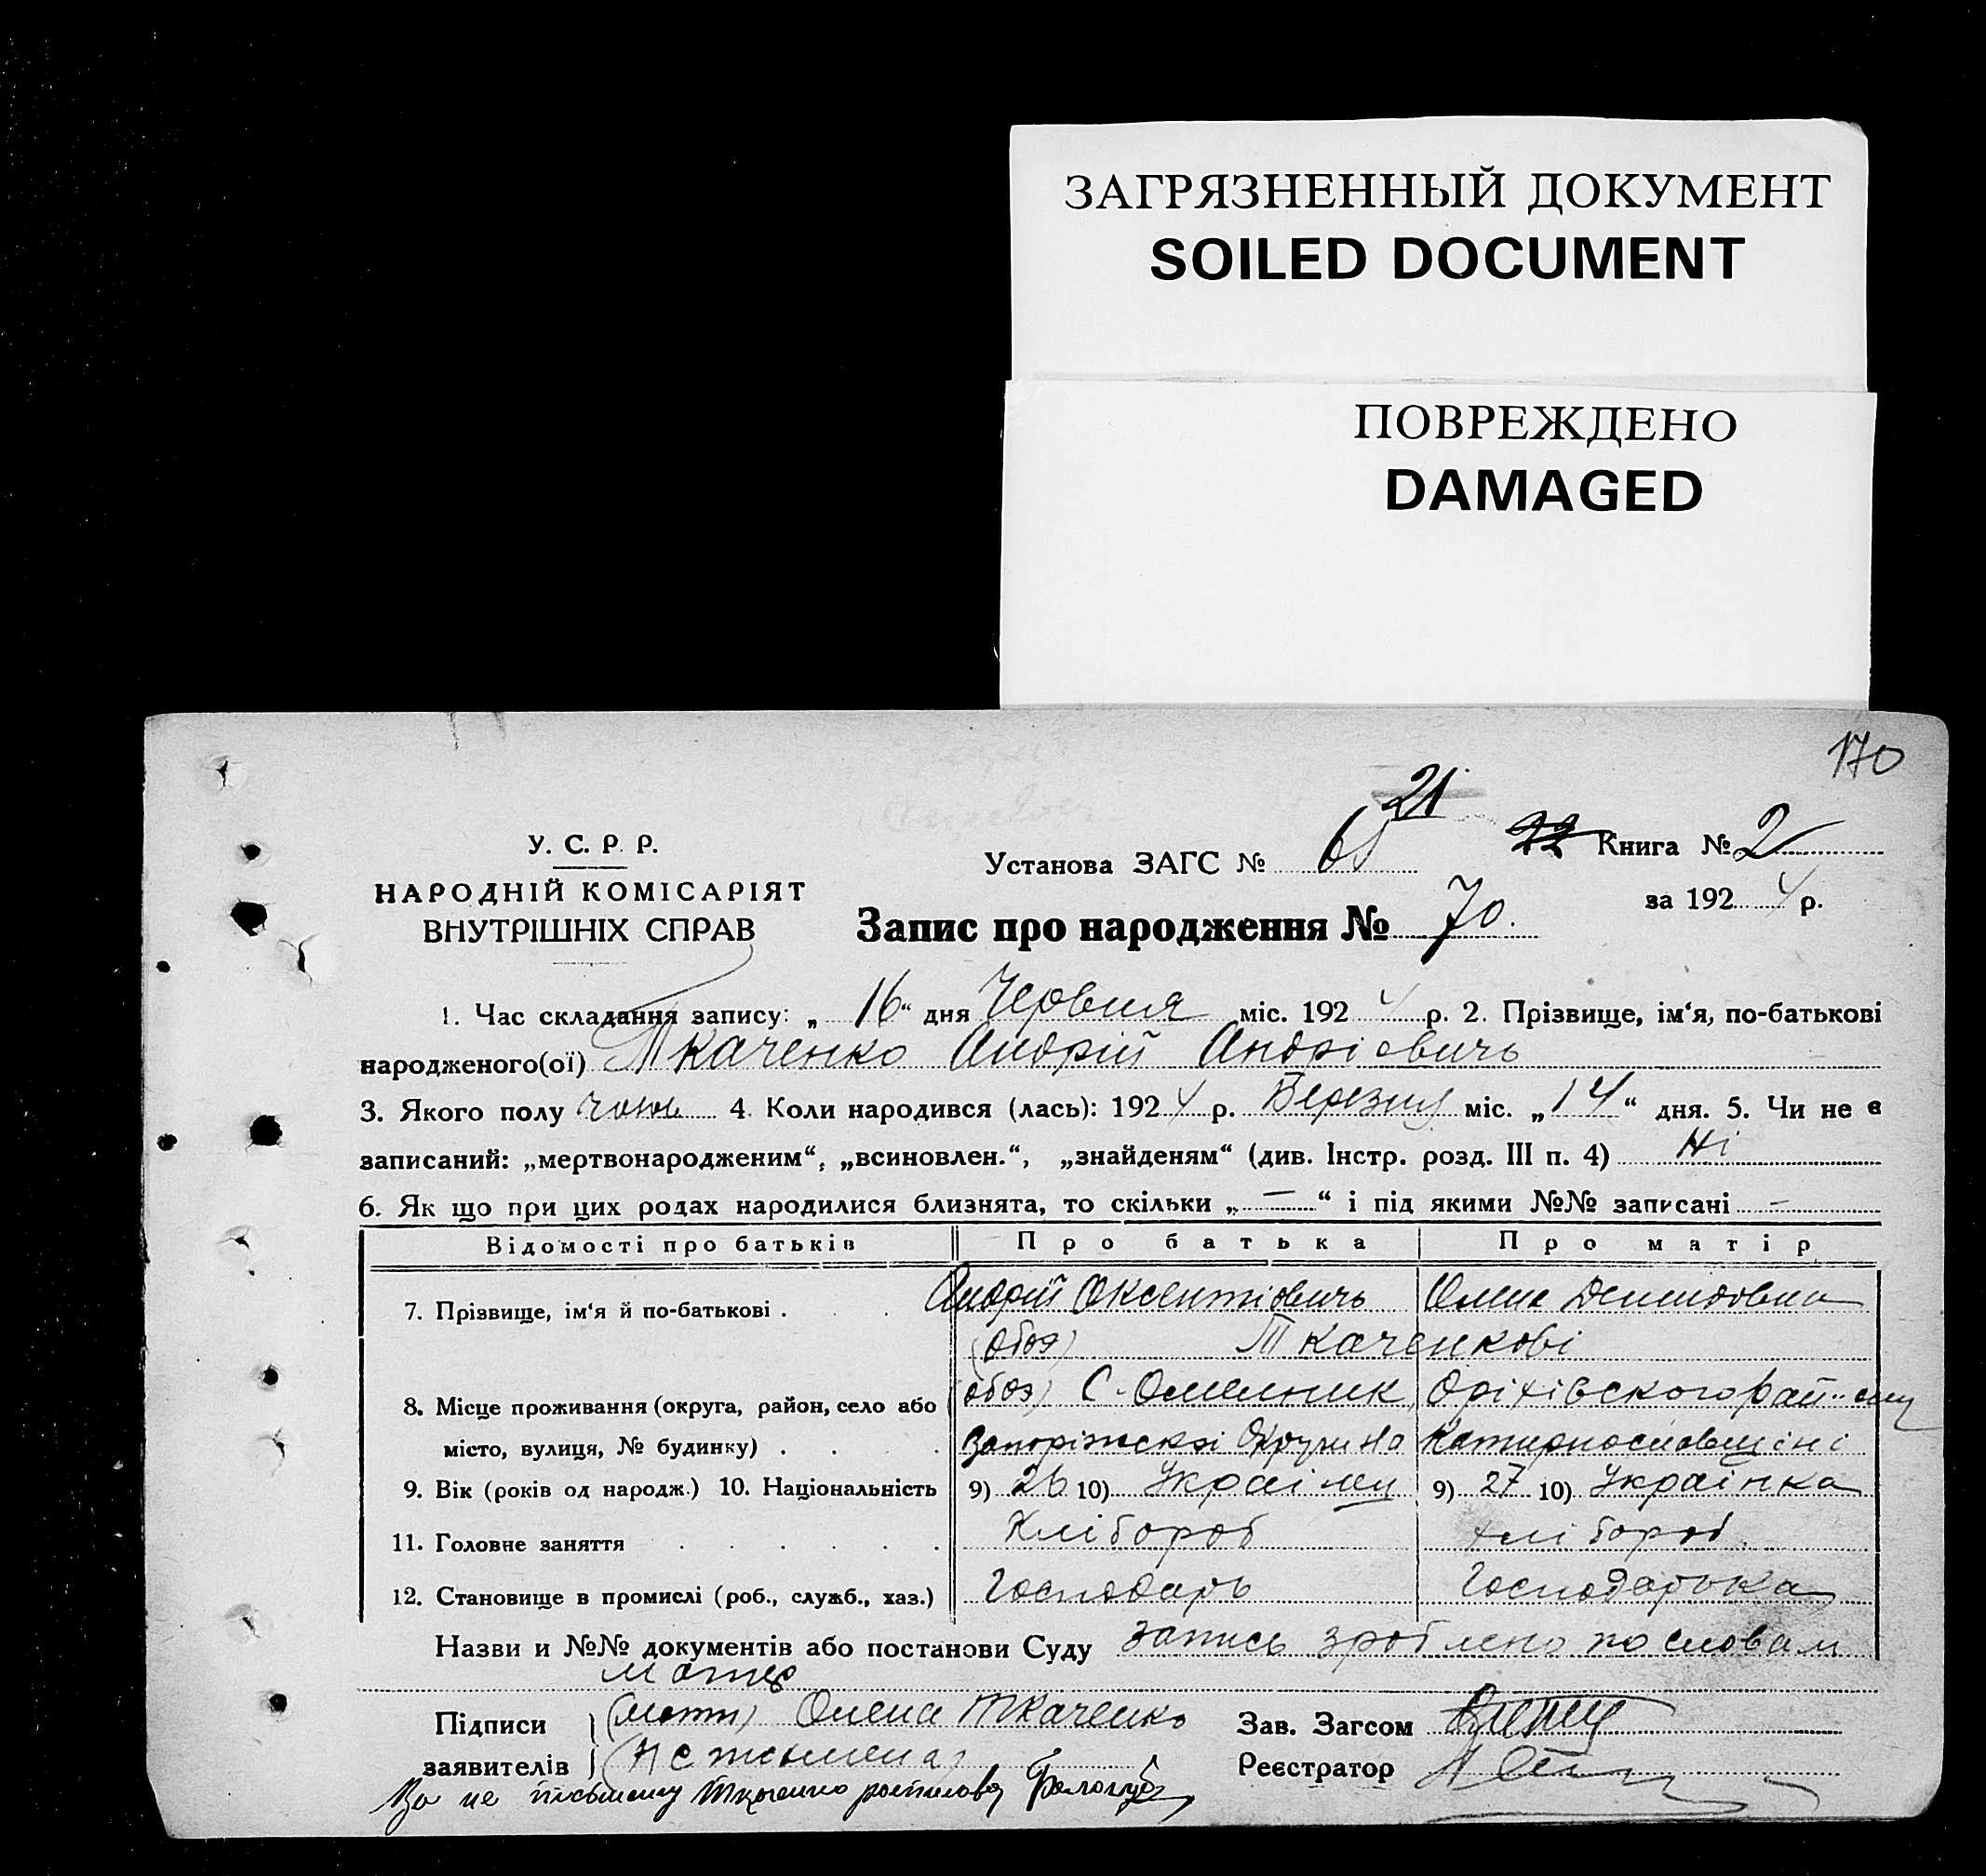 ЗАГРЯЗНЕННЫЙ ДОКУМЕНТ
SOILED DOCUMENT
ПОВРЕЖДЕНО
DAMAGED
170
21
У. С. Р. Р.
НАРОДНІЙ КОМІСАРІЯТ
ВНУТРІШНІХ СПРАВ
Установа ЗАГС № 65 22 Книга № 2
за 1924 р.
Запис про народження № 70.
1. Час складання запису: „16“ дня Червня міс. 1924 р. 2. Прізвище, ім‘я, по-батькові
народженого(ої) Ткаченко Андрій Андрієвичь
3. Якого полу чолов 4. Коли народився (лась): 1924 р. Березня міс. „14“ дня. 5. Чи не є
записаний: „мертвонародженим“, „всиновлен.“, „знайденям“ (див. Інстр. розд. III п. 4) Ні
6. Як що при цих родах народилися близнята, то скільки „—“ і під якими №№ записані —
Відомості про батьків Про батька Про матір
7. Прізвище, ім‘я й по-батькові . . Андрій Оксентіовичь Олена Демидовна
(обоя) Ткаченкові
8. Місце проживання (округа, район, село або (обоя) С. Омельник, Оріхівского рай
місто, вулиця, № будинку) . . . . Запоріжскої Округи на Катиринославщіні
9. Вік (років од народж.) 10. Національність 9) 26 10) Українец 9) 27 10) Українка
11. Головне заняття . . . . . . Хлібороб хлібороб.
12. Становище в промислі (роб., служб., хаз.) Господарь Господарька
Назви и №№ документів або постанови Суду Запись зроблено по словам
матери
Підписи (мати) Олена Ткаченко Зав. Загсом
заявителів (не письмена) Реєстратор
За не письмену Ткаченко